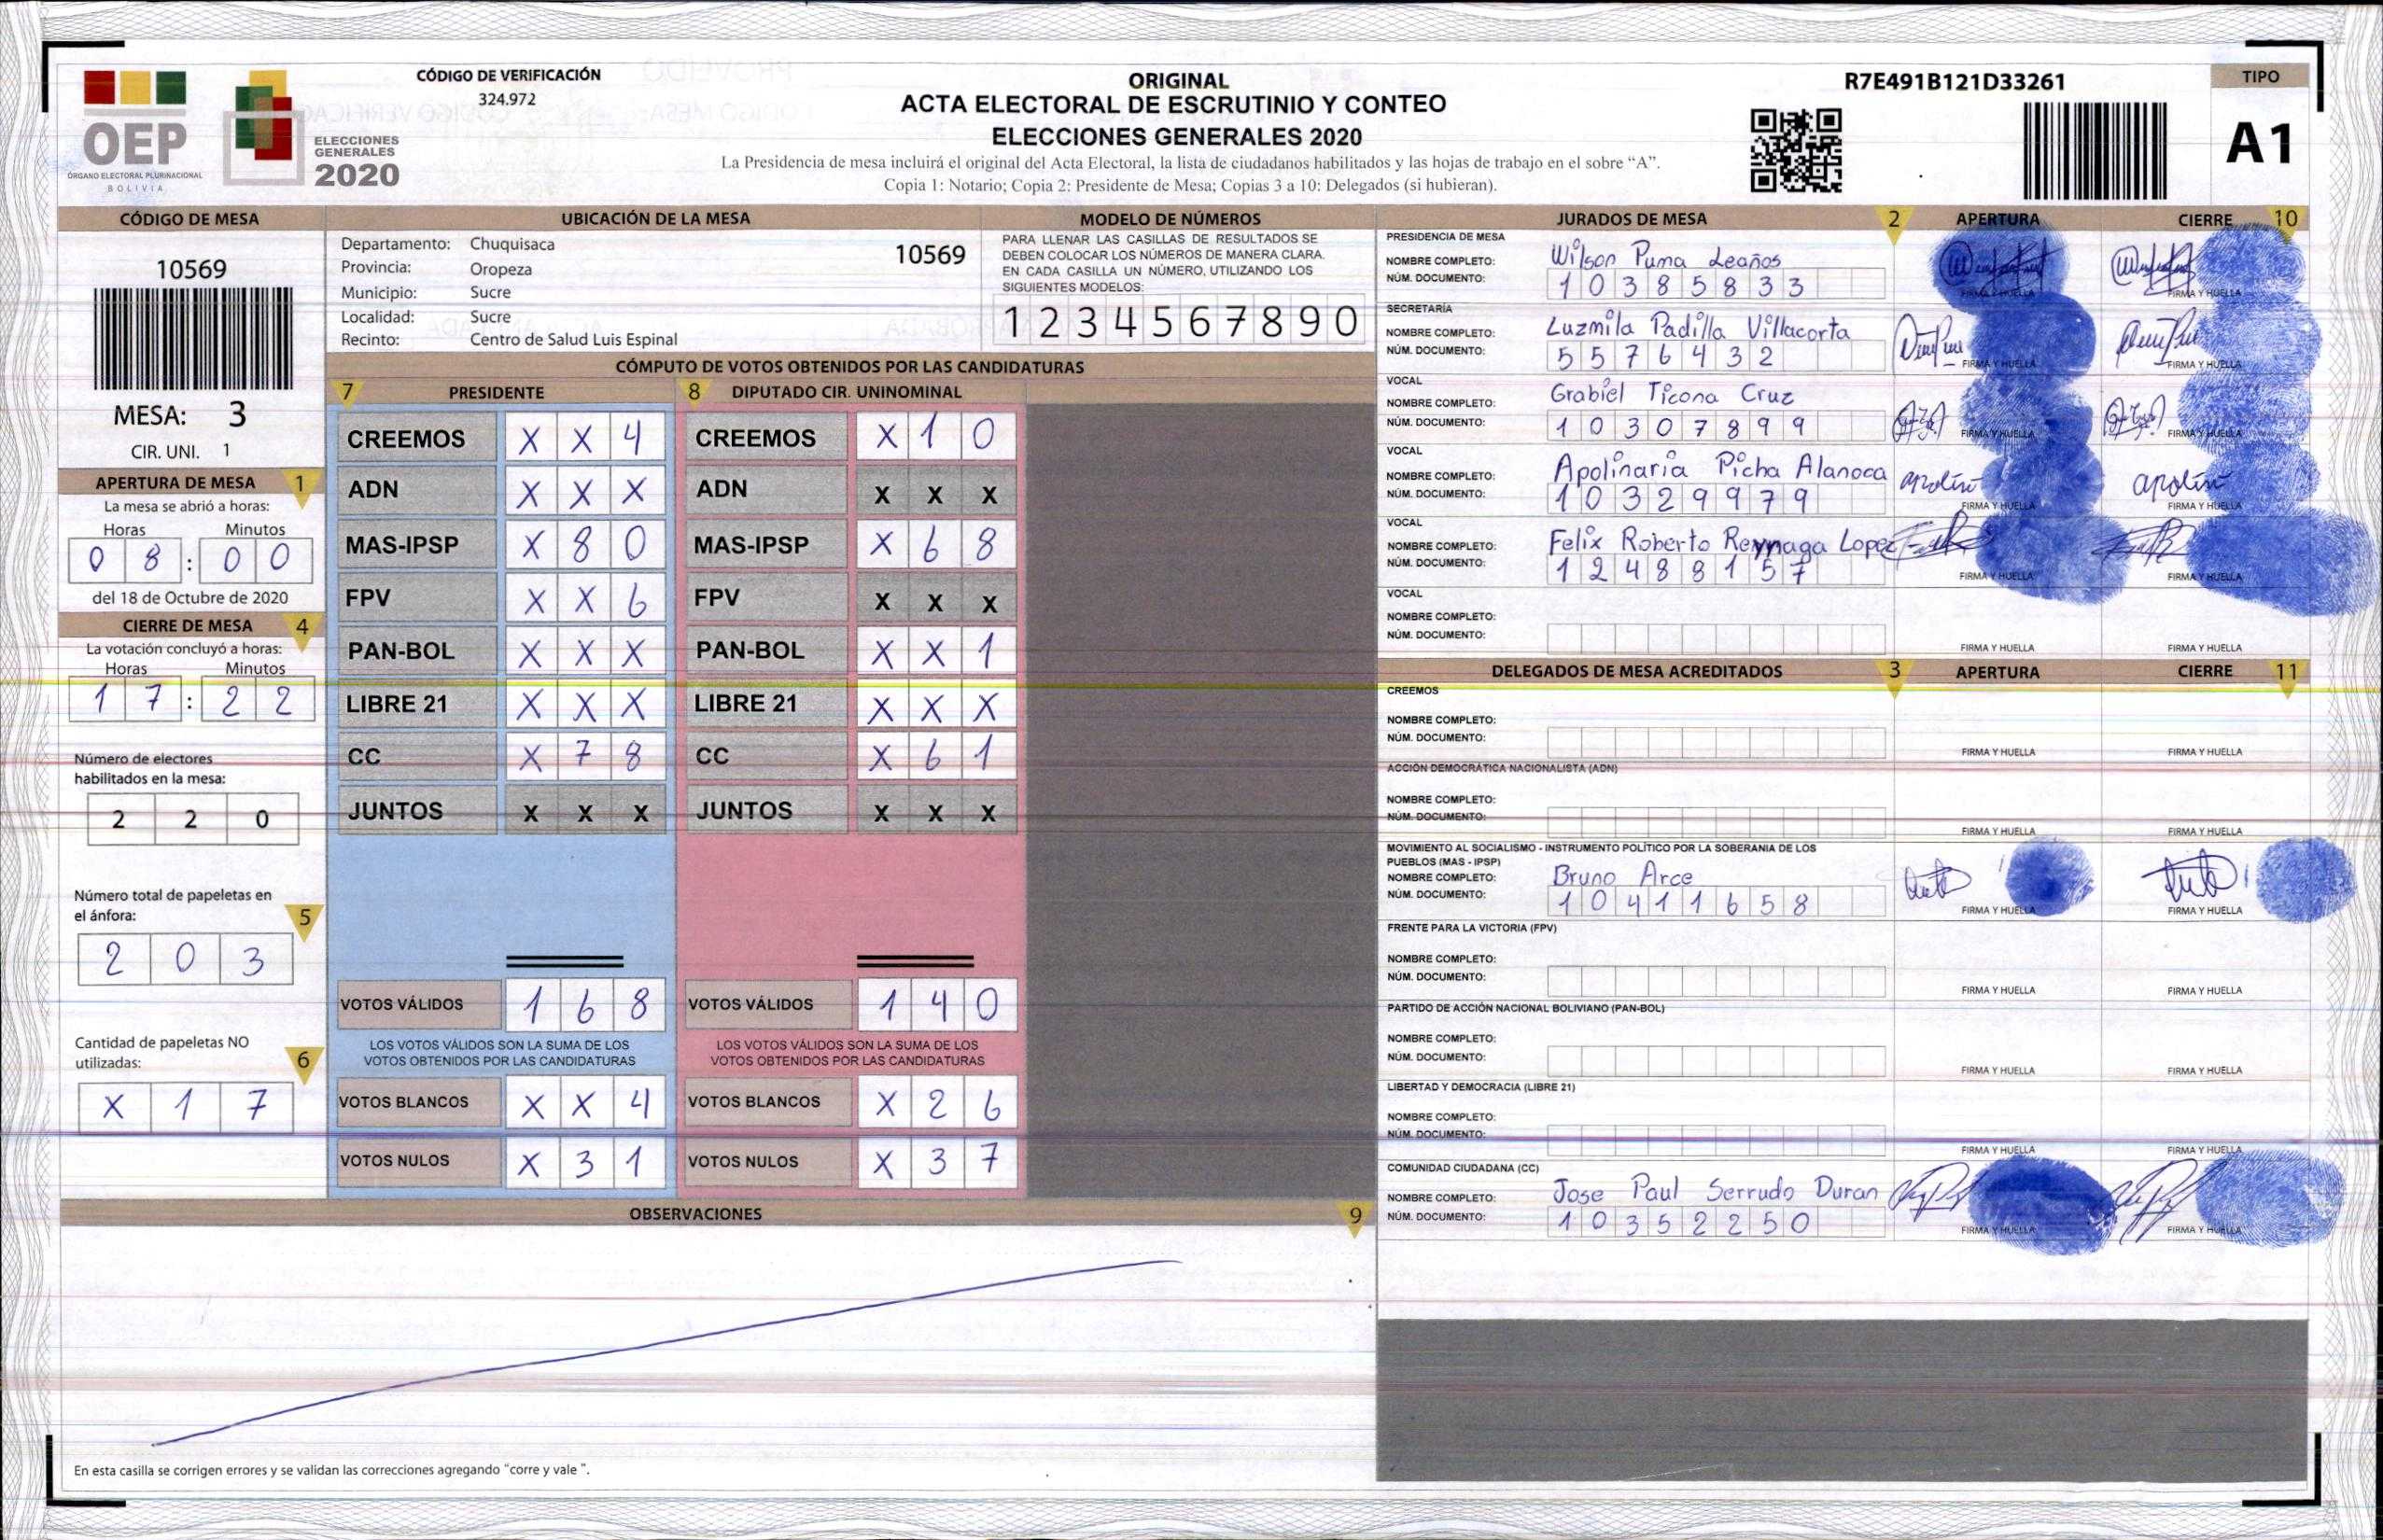 OEP
ÓRGANO ELECTORAL PLURINACIONAL
BOLIVIA
ELECCIONES
GENERALES
2020
CÓDIGO DE VERIFICACIÓN
324.972
ORIGINAL
ACTA ELECTORAL DE ESCRUTINIO Y CONTEO
ELECCIONES GENERALES 2020
La Presidencia de mesa incluirá el original del Acta Electoral, la lista de ciudadanos habilitados y las hojas de trabajo en el sobre “A”.
Copia 1: Notario; Copia 2: Presidente de Mesa; Copias 3 a 10: Delegados (si hubieran).
R7E491B121D33261
TIPO
A1
CÓDIGO DE MESA
10569
MESA: 3
CIR. UNI. 1
APERTURA DE MESA 1
La mesa se abrió a horas:
Horas Minutos
0 8 : 0 0
del 18 de Octubre de 2020
CIERRE DE MESA 4
La votación concluyó a horas:
Horas Minutos
1 7 : 2 2
Número de electores
habilitados en la mesa:
2 2 0
Número total de papeletas en
el ánfora: 5
2 0 3
Cantidad de papeletas NO
utilizadas: 6
X 1 7
UBICACIÓN DE LA MESA
Departamento: Chuquisaca 10569
Provincia: Oropeza
Municipio: Sucre
Localidad: Sucre
Recinto: Centro de Salud Luis Espinal
MODELO DE NÚMEROS
PARA LLENAR LAS CASILLAS DE RESULTADOS SE
DEBEN COLOCAR LOS NÚMEROS DE MANERA CLARA.
EN CADA CASILLA UN NÚMERO, UTILIZANDO LOS
SIGUIENTES MODELOS:
1 2 3 4 5 6 7 8 9 0
CÓMPUTO DE VOTOS OBTENIDOS POR LAS CANDIDATURAS
7 PRESIDENTE 8 DIPUTADO CIR. UNINOMINAL
CREEMOS X X 4 CREEMOS X 1 0
ADN X X X ADN X X X
MAS-IPSP X 8 0 MAS-IPSP X 6 8
FPV X X 6 FPV X X X
PAN-BOL X X X PAN-BOL X X 1
LIBRE 21 X X X LIBRE 21 X X X
CC X 7 8 CC X 6 1
JUNTOS X X X JUNTOS X X X
VOTOS VÁLIDOS 1 6 8 VOTOS VÁLIDOS 1 4 0
LOS VOTOS VÁLIDOS SON LA SUMA DE LOS LOS VOTOS VÁLIDOS SON LA SUMA DE LOS
VOTOS OBTENIDOS POR LAS CANDIDATURAS VOTOS OBTENIDOS POR LAS CANDIDATURAS
VOTOS BLANCOS X X 4 VOTOS BLANCOS X 2 6
VOTOS NULOS X 3 1 VOTOS NULOS X 3 7
OBSERVACIONES 9
En esta casilla se corrigen errores y se validan las correcciones agregando “corre y vale ”.
JURADOS DE MESA 2 APERTURA CIERRE 10
PRESIDENCIA DE MESA
NOMBRE COMPLETO: Wilson Puma Leaños
NÚM. DOCUMENTO: 1 0 3 8 5 8 3 3
FIRMA Y HUELLA FIRMA Y HUELLA
SECRETARÍA
NOMBRE COMPLETO: Luzmila Padilla Villacorta
NÚM. DOCUMENTO: 5 5 7 6 4 3 2
FIRMA Y HUELLA FIRMA Y HUELLA
VOCAL
NOMBRE COMPLETO: Grabiel Ticona Cruz
NÚM. DOCUMENTO: 1 0 3 0 7 8 9 9
FIRMA Y HUELLA FIRMA Y HUELLA
VOCAL
NOMBRE COMPLETO: Apolinaria Picha Alanoca
NÚM. DOCUMENTO: 1 0 3 2 9 9 7 9
FIRMA Y HUELLA FIRMA Y HUELLA
VOCAL
NOMBRE COMPLETO: Felix Roberto Reynaga Lopez
NÚM. DOCUMENTO: 1 2 4 8 8 1 5 7
FIRMA Y HUELLA FIRMA Y HUELLA
VOCAL
NOMBRE COMPLETO:
NÚM. DOCUMENTO:
FIRMA Y HUELLA FIRMA Y HUELLA
DELEGADOS DE MESA ACREDITADOS 3 APERTURA CIERRE 11
CREEMOS
NOMBRE COMPLETO:
NÚM. DOCUMENTO:
FIRMA Y HUELLA FIRMA Y HUELLA
ACCIÓN DEMOCRÁTICA NACIONALISTA (ADN)
NOMBRE COMPLETO:
NÚM. DOCUMENTO:
FIRMA Y HUELLA FIRMA Y HUELLA
MOVIMIENTO AL SOCIALISMO - INSTRUMENTO POLÍTICO POR LA SOBERANIA DE LOS
PUEBLOS (MAS - IPSP)
NOMBRE COMPLETO: Bruno Arce
NÚM. DOCUMENTO: 1 0 4 1 1 6 5 8
FIRMA Y HUELLA FIRMA Y HUELLA
FRENTE PARA LA VICTORIA (FPV)
NOMBRE COMPLETO:
NÚM. DOCUMENTO:
FIRMA Y HUELLA FIRMA Y HUELLA
PARTIDO DE ACCIÓN NACIONAL BOLIVIANO (PAN-BOL)
NOMBRE COMPLETO:
NÚM. DOCUMENTO:
FIRMA Y HUELLA FIRMA Y HUELLA
LIBERTAD Y DEMOCRACIA (LIBRE 21)
NOMBRE COMPLETO:
NÚM. DOCUMENTO:
FIRMA Y HUELLA FIRMA Y HUELLA
COMUNIDAD CIUDADANA (CC)
NOMBRE COMPLETO: Jose Paul Serrudo Duran
NÚM. DOCUMENTO: 1 0 3 5 2 2 5 0
FIRMA Y HUELLA FIRMA Y HUELLA